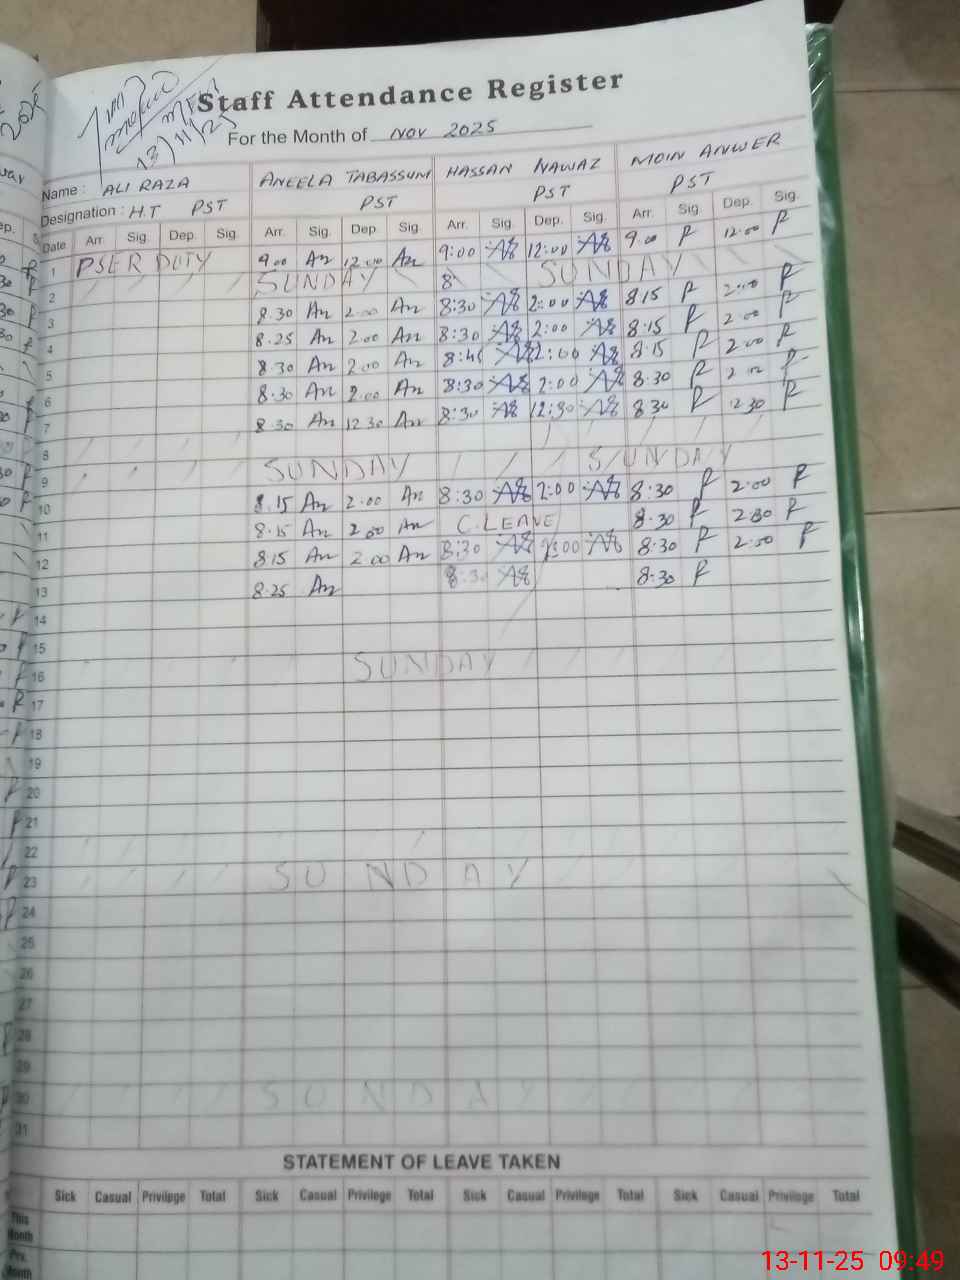 2025
13/11/25
Staff Attendance Register
For the Month of Nov 2025
Name : ALI RAZA ANEELA TABASSUM HASSAN NAWAZ MOIN ANWER
Designation : H.T PST PST PST PST
Date Arr. Sig. Dep. Sig. Arr. Sig. Dep. Sig. Arr. Sig. Dep. Sig. Arr. Sig. Dep. Sig.
1 PSER DUTY 9.00 An 12.00 An 9:00 12:00 9.00 12.00
2 SUNDAY 8 SUNDAY
3 8.30 An 2.00 An 8:30 2:00 8.15 2.00
4 8.25 An 2.00 An 8:30 2:00 8.15 2.00
5 8.30 An 2.00 An 2:00 8.15 2.00
6 8.30 An 2.00 An 8:30 2:00 8.30
7 8.30 An 12.30 An 8:30 12:30 8.30 12.30
8
9 SUNDAY SUNDAY
10 8.15 An 2.00 An 8:30 2:00 8:30 2.00
11 8.15 An 2.00 An C.LEAVE 8.30
12 8.15 An 2.00 An 8:30 8:30
13 8.25 An 8:30 8:30
14
15
16 SUNDAY
17
18
19
20
21
22
23 SUNDAY
24
25
26
27
28
29
30 SUNDAY
31
STATEMENT OF LEAVE TAKEN
Sick Casual Privilege Total Sick Casual Privilege Total Sick Casual Privilege Total Sick Casual Privilege Total
This Month
Prv. Month
13-11-25 09:49